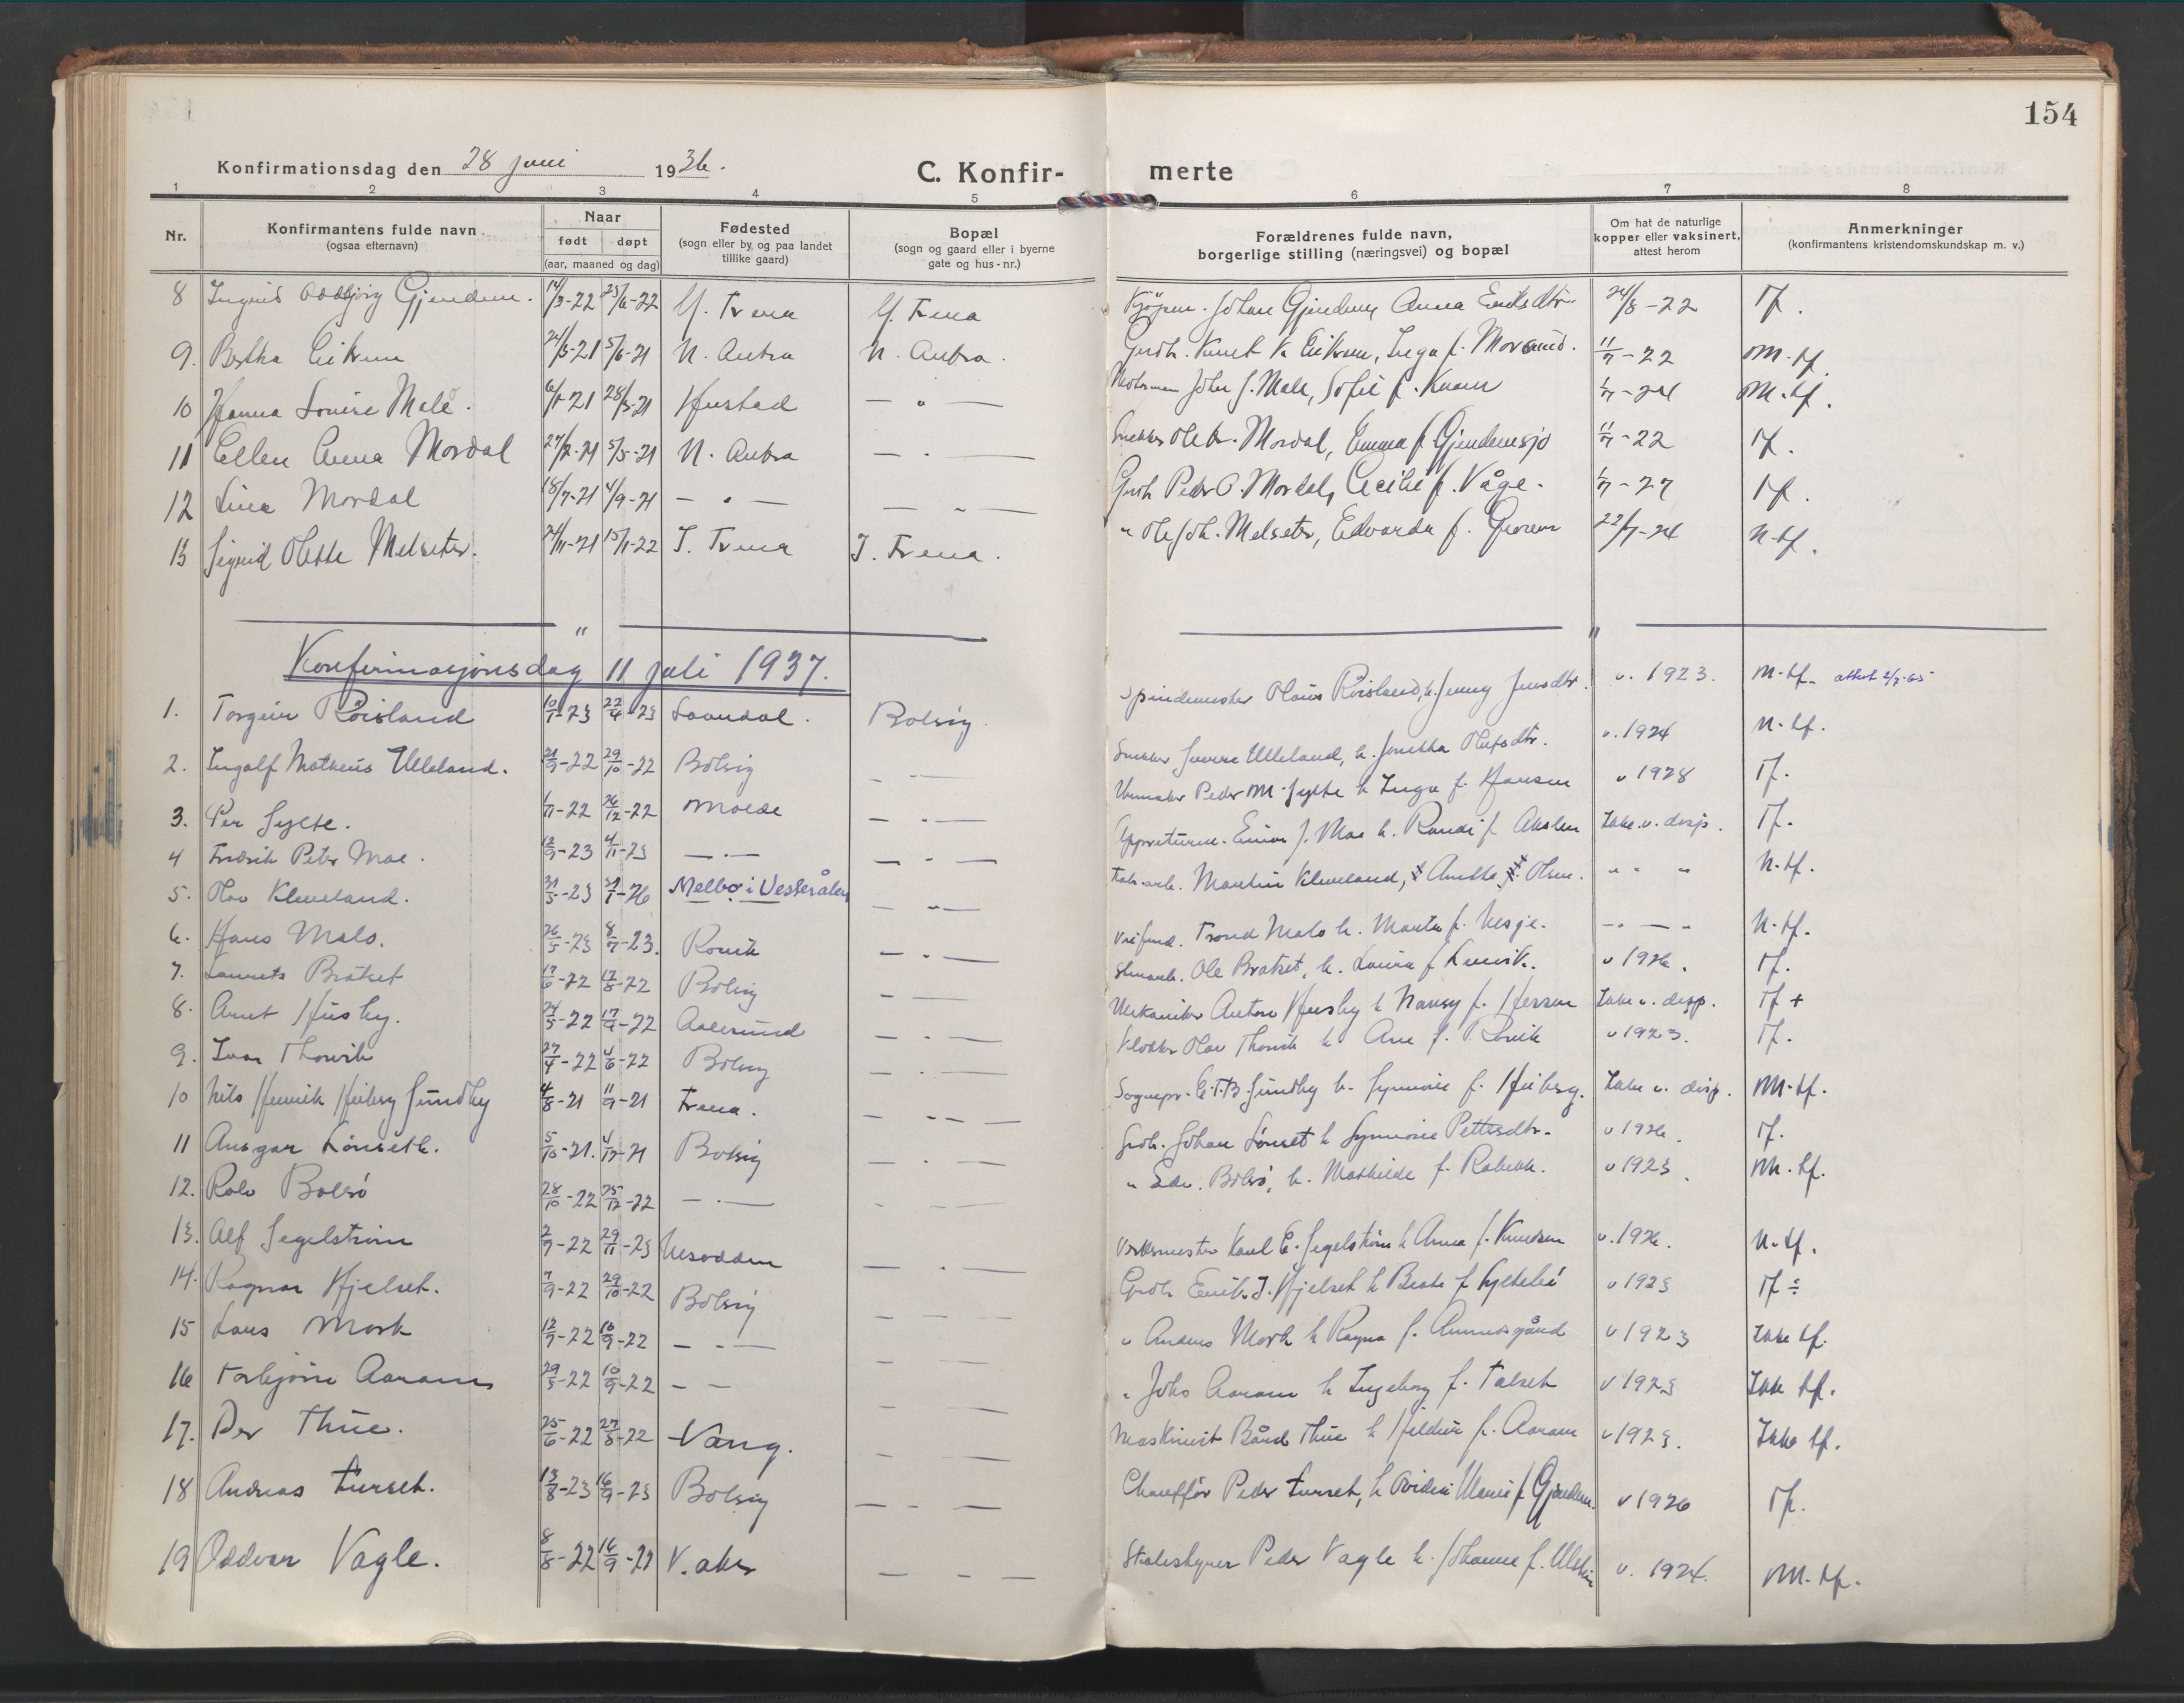 154
Konfirmationsdag den 28 juni 1936.
C. Konfir-merte
1 2 3 4 5 6 7 8
Nr.
Konfirmantens fulde navn
(ogsaa efternavn)
Naar
født døpt
(aar, maaned og dag)
Fødested
(sogn eller by, og paa landet
tillike gaard)
Bopæl
(sogn og gaard eller i byerne
gate og hus-nr.)
Forældrenes fulde navn,
borgerlige stilling (næringsvei) og bopæl
Om hat de naturlige
kopper eller vaksinert,
attest herom
Anmerkninger
(konfirmantens kristendomskundskap m. v.)
8 Ingrid Oddbjørg Gjendem. 14/3-22 25/6-22 Y. Frena Y. Frena Johan Gjendem, Anna 24/8-22 Tf.
9. Bertha Eikrem 5/6-21 N. Aukra N. Aukra. Grdb. Knut K. Eikrem, Inga f. 11/7-22 M-tf.
10 Hanna Lovise Male. 6/1-21 28/3-21 Hustad — " — John J. Male, Sofie f. M-tf.
11 Ellen Anna Mordal 5/5-21 N. Aukra — . — Mordal, Emma f. Gjendemsjø 11/7-22 Tf.
12 Lina Mordal 18/7-21 4/9-21 — . — — " — Grdb. Peder O. Mordal, Cecilie f. Våge. Tf.
13 Sigrid Olette Melseter. 24/11-21 15/1-22 I. Frena I. Frena. " Ole Joh. Melseter, Edvarda f. 22/7-24 N-tf.
Konfirmasjonsdag 11 juli 1937.
1. Torgeir Röisland 10/1-23 22/4-23 Laudal. Bolsöy. Spindemester Olaus Röisland, h. Jenny Jensdtr. v. 1923. M-tf. attest 2/7-65
2. Ingolf Matheus Ulleland. 21/9-22 29/10-22 Bolsöy — . — Snekker Ulleland, h. Olufsdtr. v. 1924 N-tf.
3. Per Sylte. 1/11-22 26/12-22 Molde — . — Urmaker Peder M. Sylte h. Inga f. Hansen v 1928 Tf.
4 Fredrik Peter Moe. 12/9-23 4/11-23 — . — — . — Einar J. Moe h. Randi f. Akslen Ikke v. disp. Tf.
5. Olav Kleveland. 31/3-23 Melbo i Vesterålen — " — Martin Kleveland, Olsen. " " " N-tf.
6. Hans Malo. 26/5-23 8/7-23. Rövik — . — Trond Malo h. Marta f. Nesje. — — " N-tf.
7. Laurits Bratset 17/6-22 17/8-22 Bolsöy — . — Ole Bratset, h. Laura f. v 1926. Tf.
8. Arnt Husby. 24/5-22 17/9-22 Aalesund — . — Mekaniker Anton Husby h. Nancy f. Ikke v. disp. Tf +
9. Ivar Thorvik 27/4-22 4/6-22 Bolsöy — . — Klokker Olav Thorvik h. Ane f. Rövik v 1923. Tf.
10 Nils Henrik Heiberg Sundby 4/8-21 11/9-21 Frena. — — — Sognepr. C.T.B. Sundby h. Synnöve f. Heiberg. Ikke v. disp. M-tf.
11 Ansgar Lönseth. 5/10-21. 4/12-21 Bolsöy — . — Grdb. Johan Lönset h. Synnöve Pettersdtr. v 1926. Tf.
12. Rolv Bolsö 28/10-22 25/12-22 — . — — — — " Edv. Bolsö, h. Mathilde f. Röbekk. v 1923. M-tf.
13. Alf Segelström 2/7-22 29/11-23 Nesodden — . — Verksmester Karl E. Segelström h. Anna f. Knudsen v. 1926. N-tf.
14. Ragnar Hjelset. 7/9-22 29/10-22 Bolsöy — — — Grdb. J. Hjelset h. Beate f. v 1923 Tf ÷
15 Lars Mork 12/7-22 10/9-22 — . — — — " Anders Mork h. Ragna f. v 1923 Ikke tf.
16 Torbjörn Aaram 29/5-22 10/9-22 — — — — " Johs Aaram h. Ingeborg f. Talset v 1923 Ikke tf.
17. Per Thue. 25/6-22 27/8-22 Vang. — — Maskinist Bård Thue h. f. Aaram v 1923. Ikke tf.
18 Andreas Furset. 13/8-23 16/9-23 Bolsöy — - — Chaufför Peder Furset, h. f. Gjendem. v 1926 Tf.
19 Oddvar Vagle. 8/8-22 V. aker — — — Peder Vagle h. Johanne f. v. 1924. M-tf.